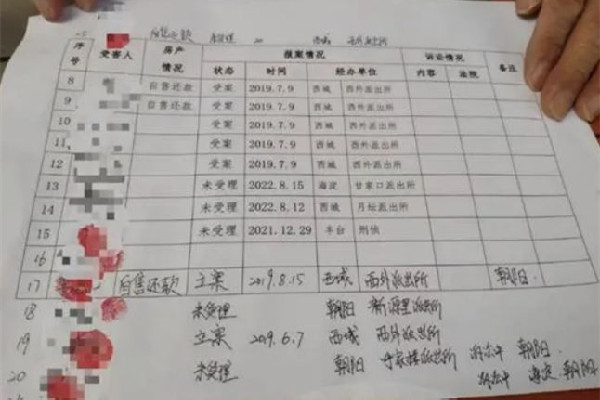 自售还款 未受理 西城
序号 受害人 房产情况 报案情况 诉讼情况 备注
状态 时间 经办单位 内容 法院
8 自售还款 受案 2019.7.9 西城 西外派出所
9 自售还款 受案 2019.7.9 西城 西外派出所
10 受案 2019.7.9 西城 西外派出所
11 受案 2019.7.9 西城 西外派出所
12 受案 2019.7.9 西城 西外派出所
13 未受理 2022.8.15 海淀 甘家口派出所
14 未受理 2022.8.12 西城 月坛派出所
15 未受理 2021.12.29 丰台 刑侦
16
17 自售还款 立案 2019.8.15 西城 西外派出所 朝阳
18 未受理 朝阳 新源里派出所
19 立案 2019.6.7 西城 西外派出所
20 未受理 朝阳 派出所 朝阳
朝阳